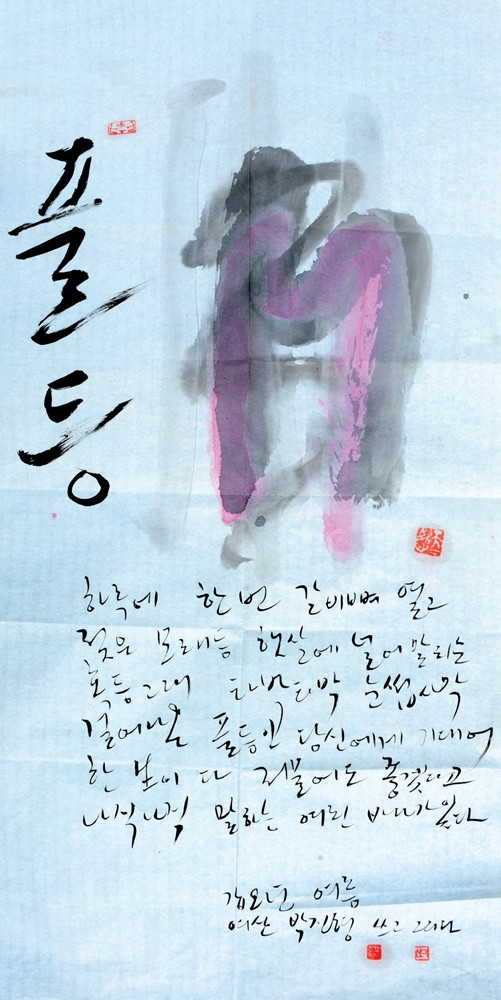 풀등
하루에 한 번 갈비뼈 열고
젖은 모래등 햇살에 널어 말리는
혹등고래 타박타박 눈썹사막
걸어나온 풀등인 당신에게 기대어
한 다 저물어도 좋겠다고
나직나직 말하는 여린 바다가 있다
갑오년 여름
여산 박진형 쓰고 그리다